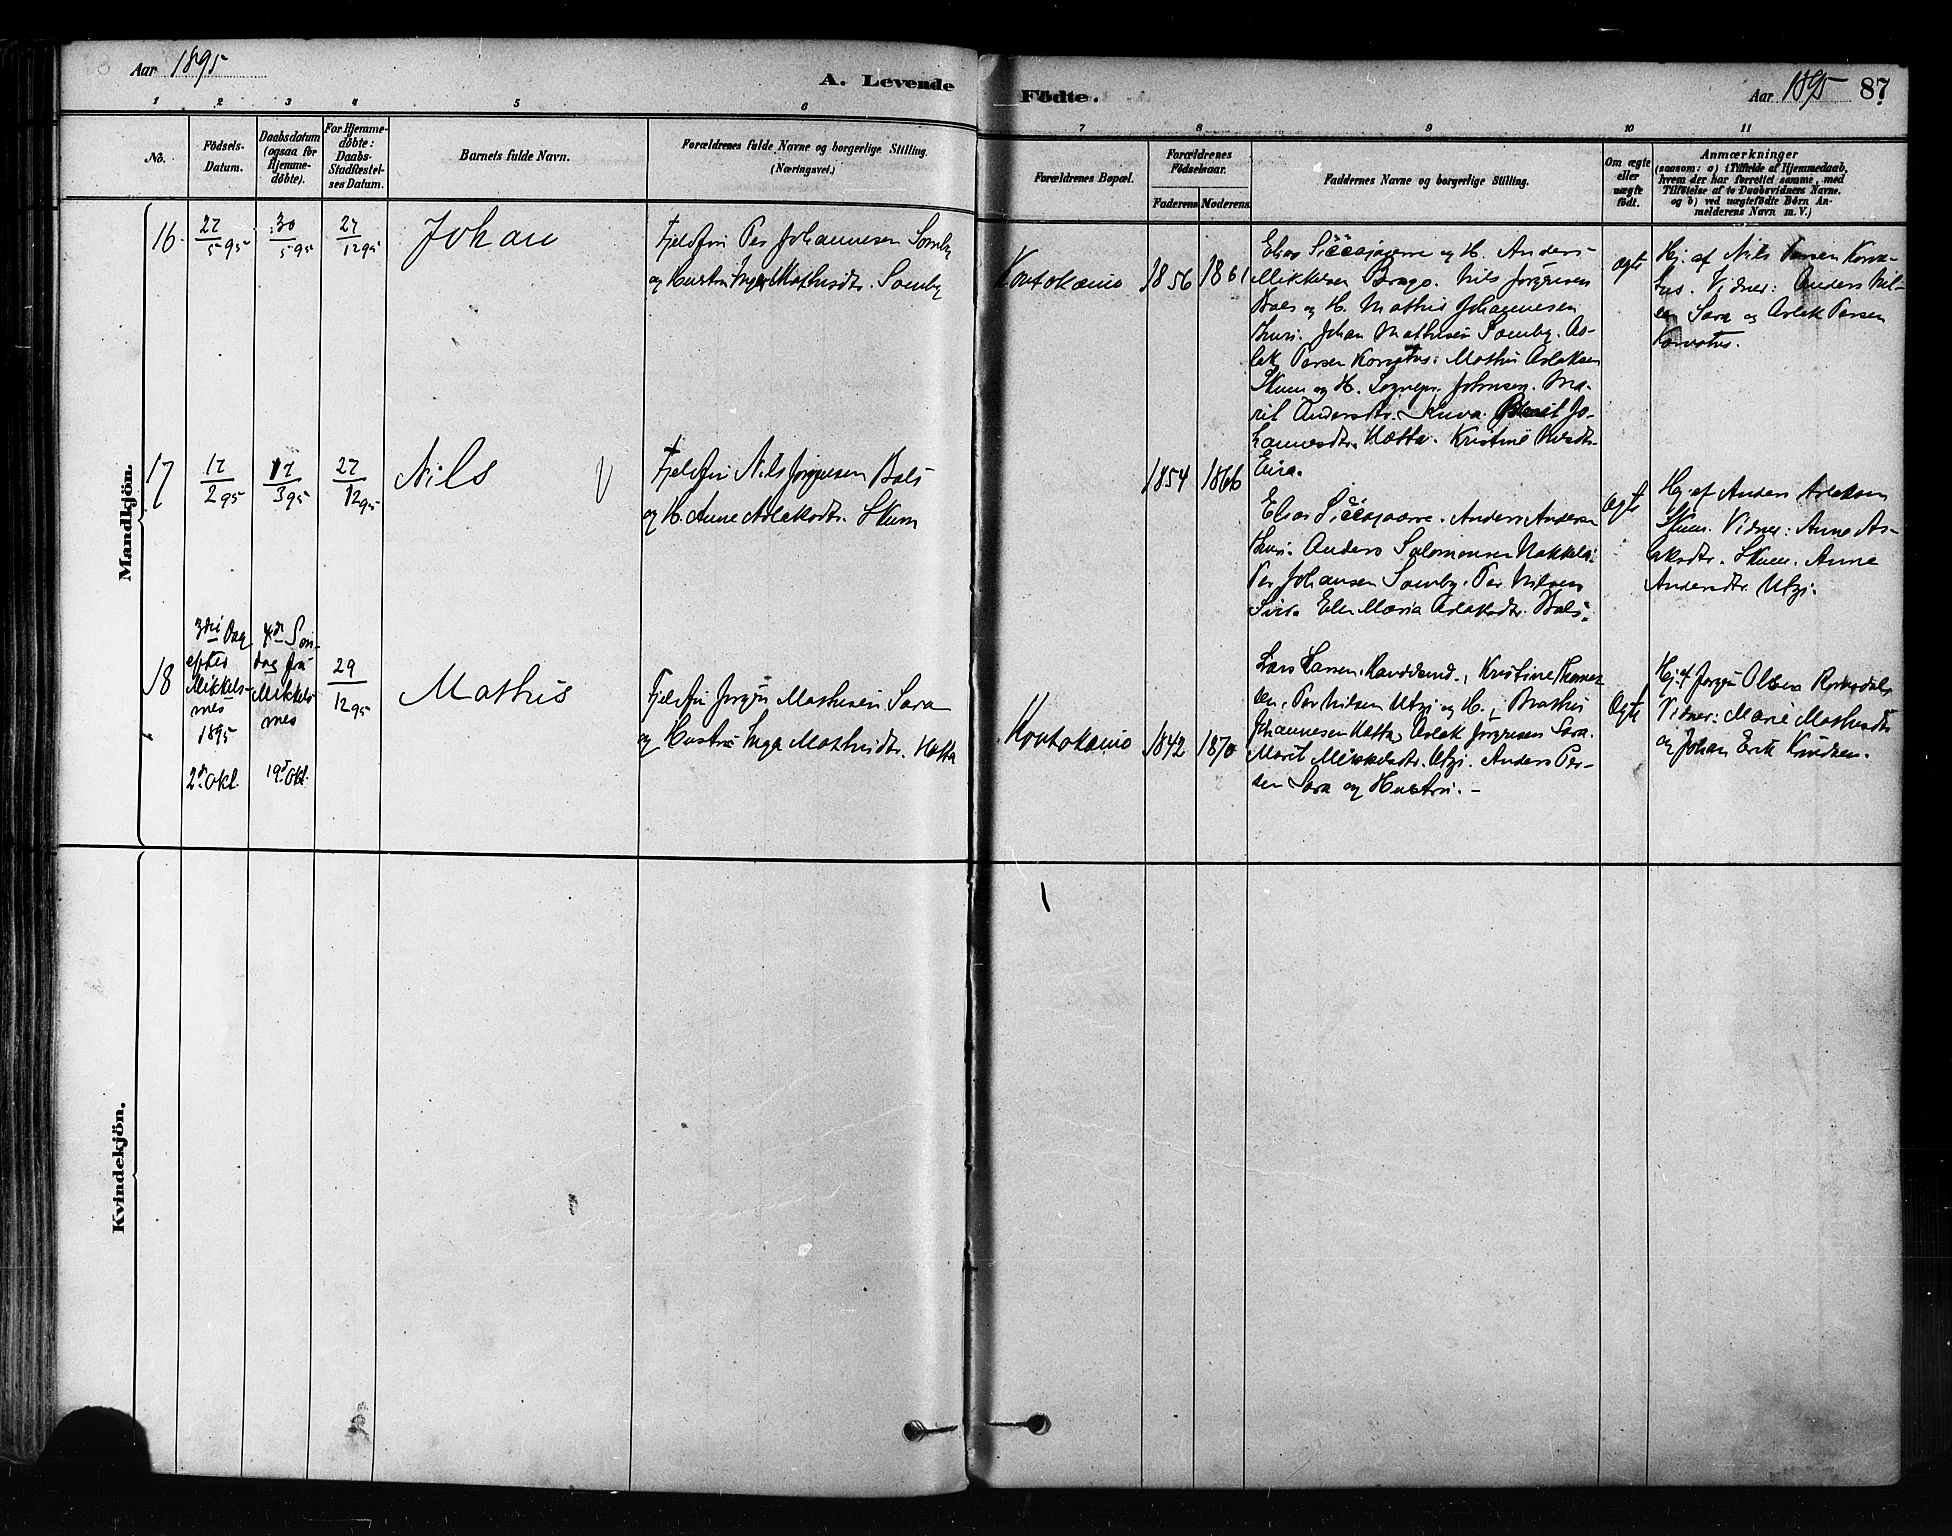 Aar 1895
A. Levende
Födte.
Aar 1895
87
1 2 3 4 5 6 7 8 9 10 11
No.
Födsels-
Datum.
Daabsdatum
(ogsaa for
Hjemme-
döbte).
For Hjemme-
döbte:
Daabs-
Stadfæstel-
ses Datum.
Barnets fulde Navn.
Forældrenes fulde Navne og borgerlige Stilling.
(Næringsvei.)
Forældrenes Bopæl.
Forældrenes
Födselsaar.
Faderens. Moderens.
Faddernes Navne og borgerlige Stilling.
Om ægte
eller
uægte
födt.
Anmærkninger
(saasom: a) i Tilfælde af Hjemmedaab,
hvem der har forrettet samme, med
Tilföielse af to Daabsvidners Navne.
og b) ved uægtefödte Börn An-
melderens Navn m. V.)
Mandkjön.
16
27/5 95
30/5 95
27/12 95
Johan
Fjeldfin Per Johannesen Somby
og Hustru Inger Mathisdtr. Somby
Koutokeino
1856
1861
Elias og H. Anders
Mikkelsen Nils Jörgensen
Bals og H. Mathis Johannesen
Johan Mathisen Somby. As-
lak Persen Mathis Aslaksen
Skum og H. Sognepr. Johnsen. Ma-
rit Andersdtr. Berit Jo-
hannesdtr. Hætta. Kristine
Eira.
ægte
Hj. af Nils Persen
Vidner: Anders Nil-
sen Sara og Aslak Persen
17
17/2 95
17/3 95
27/12 95
Nils
V
Fjeldfin Nils Jörgensen Bals
og H. Anne Aslaksdtr. Skum
1854
1866
Elias Anders Andersen
Anders Salomonsen
Per Johansen Somby. Per Nilsen
Elen Maria Aslaksdtr. Bals.
ægte
Hj. af Anders Aslaksen
Skum. Vidner: Anne As-
laksdtr. Skum. Anne
Andersdtr. Utzi.
18
3die Dag
efter
Mikkels-
mes
1895
2d. Okt.
Sön-
dag fra
Mikkels
mes
19d Okt.
29/12 95
Mathis
Fjeldfin Jörgen Mathisen Sara
og Hustru Inga Mathisdtr. Hætta
Koutokeino
1842
1870
Lars Kristine
Per Nilsen Utzi og H.,
Johannesen Hætta, Aslak Jörgensen Sara.
Marit Mikkelsdtr. Utzi. Anders Per-
sen Sara og Hustru. -
ægte
Hj. af Jörgen Olsen
Vidner: Marie Mathisdtr
og Johan Erik Knudsen.
Kvindekjön.